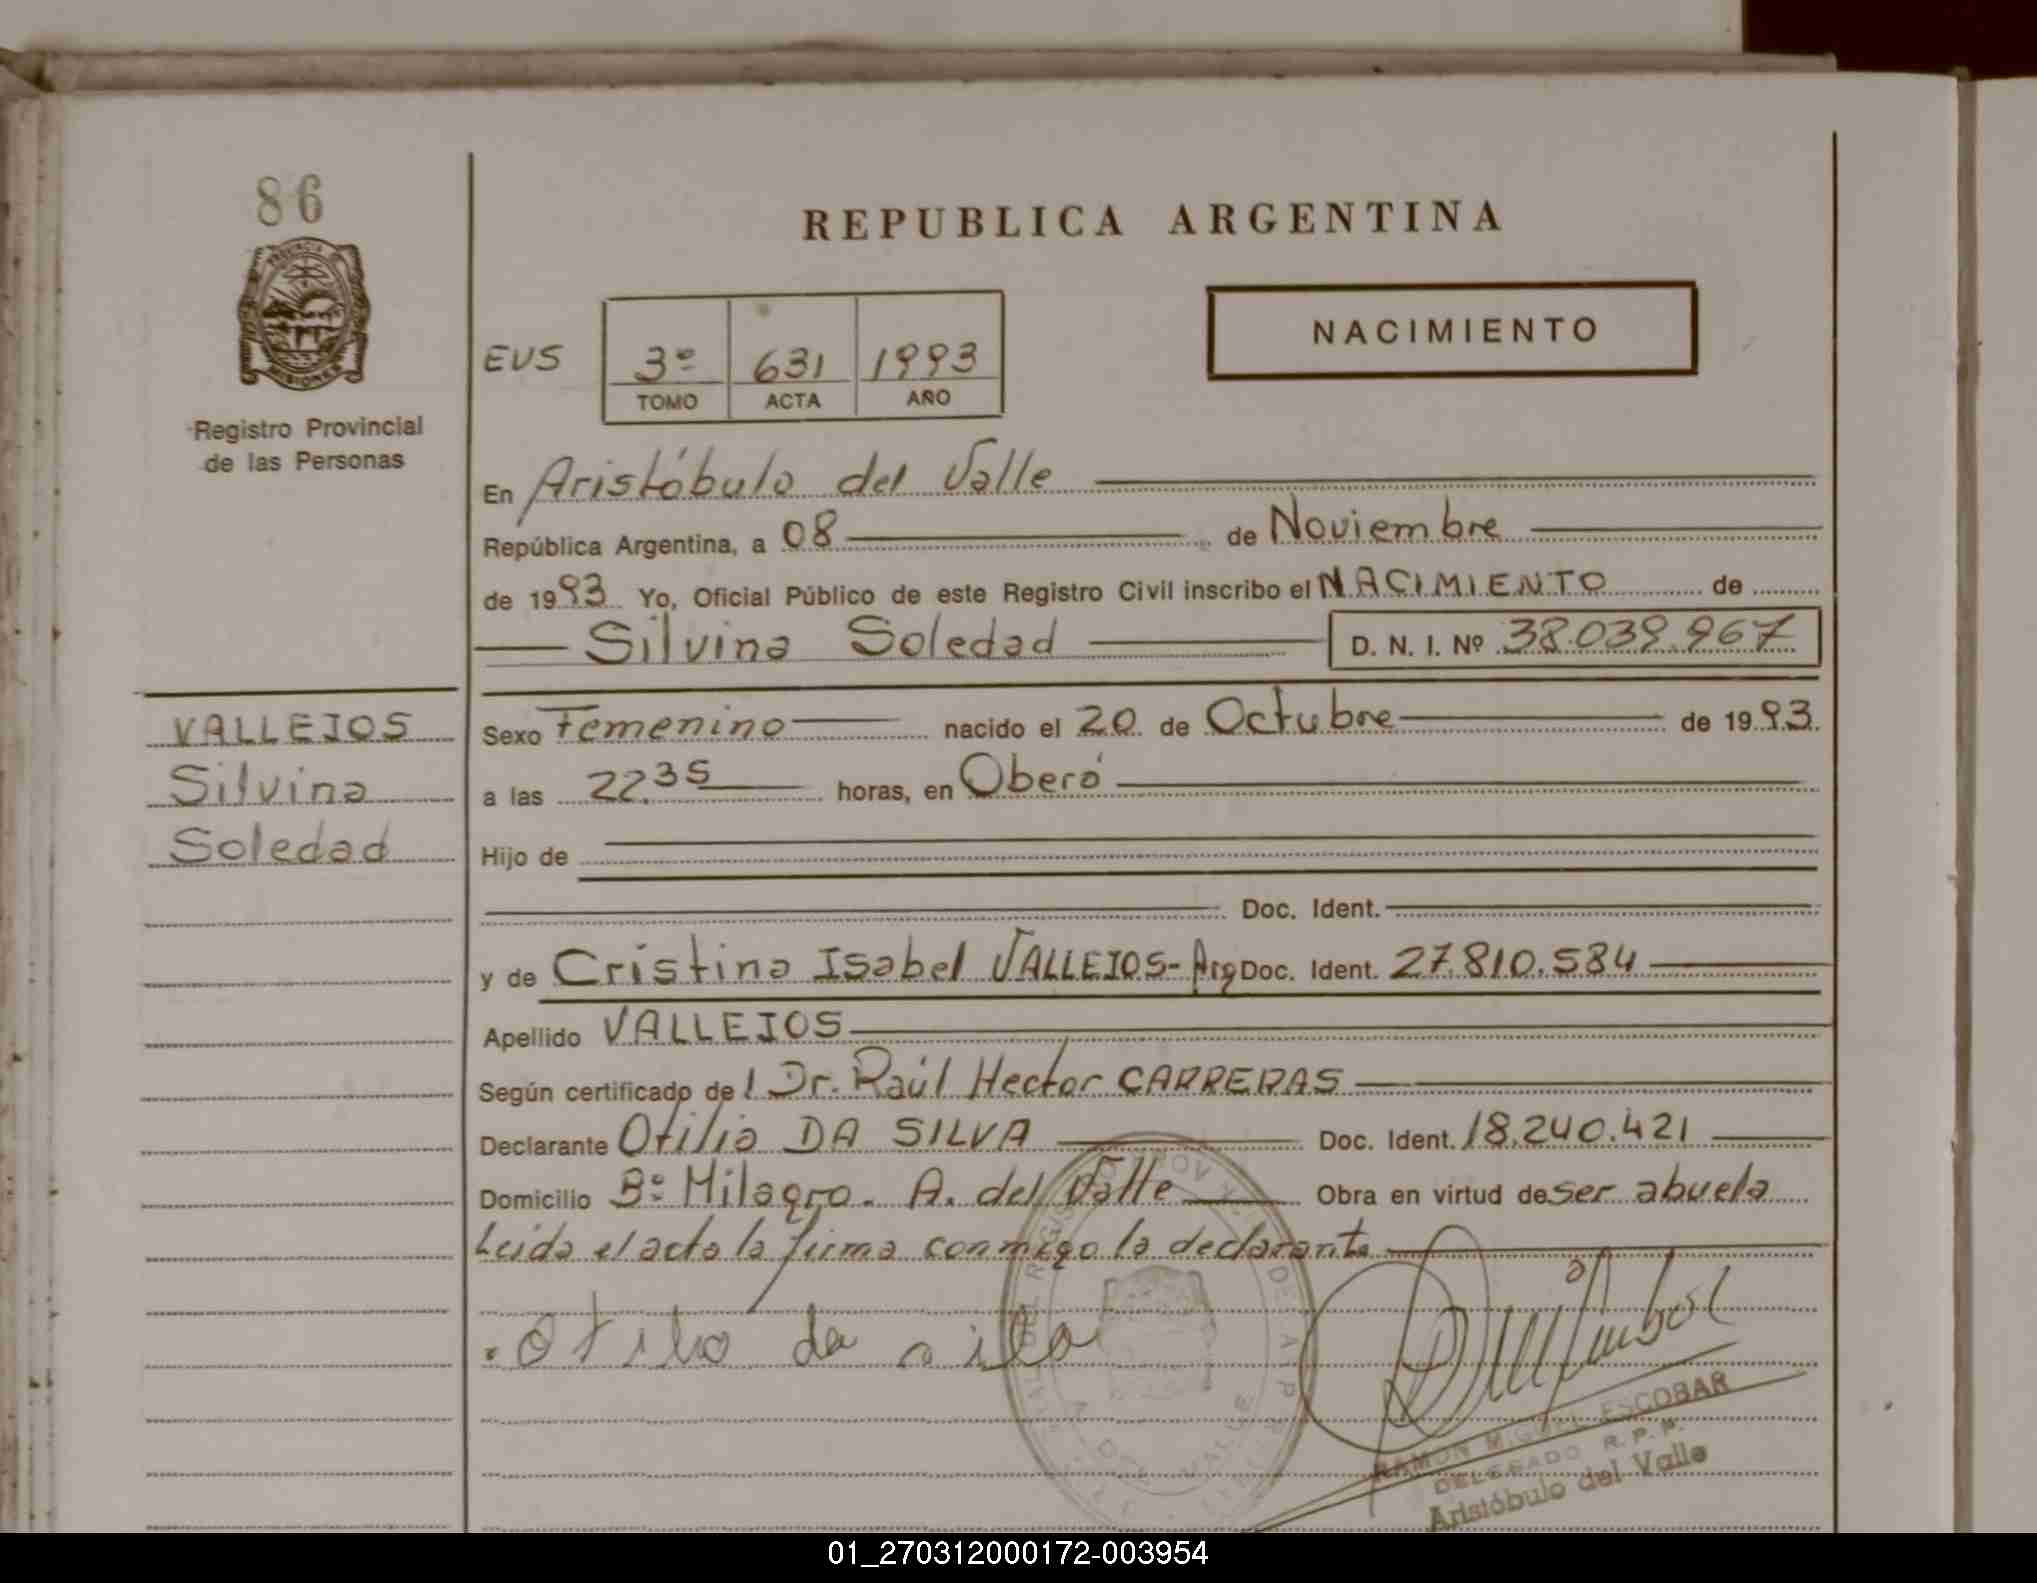 86
REPUBLICA ARGENTINA
PROVINCIA DE
MISIONES
Registro Provincial
de las Personas
EVS
3º 631 1993
TOMO ACTA AÑO
NACIMIENTO
En Aristóbulo del Valle
República Argentina, a 08 de Noviembre
de 1993 Yo, Oficial Público de este Registro Civil inscribo el NACIMIENTO de
Silvina Soledad D. N. I. Nº 38.039.967
VALLEJOS
Silvina
Soledad
Sexo Femenino nacido el 20 de Octubre de 1993.
a las 22.35 horas, en Oberá
Hijo de
Doc. Ident.
y de Cristina Isabel VALLEJOS- Arg Doc. Ident. 27.810.584
Apellido VALLEJOS
Según certificado de l Dr. Raúl Hector CARRERAS
Declarante Otilia DA SILVA Doc. Ident. 18.240.421
Domicilio Bº Milagro. A. del Valle Obra en virtud de ser abuela
Leida el acta la firma conmigo la declarante
RAMON MIGUEL ESCOBAR
DELEGADO R. P. P.
Aristóbulo del Valle
01_270312000172-003954